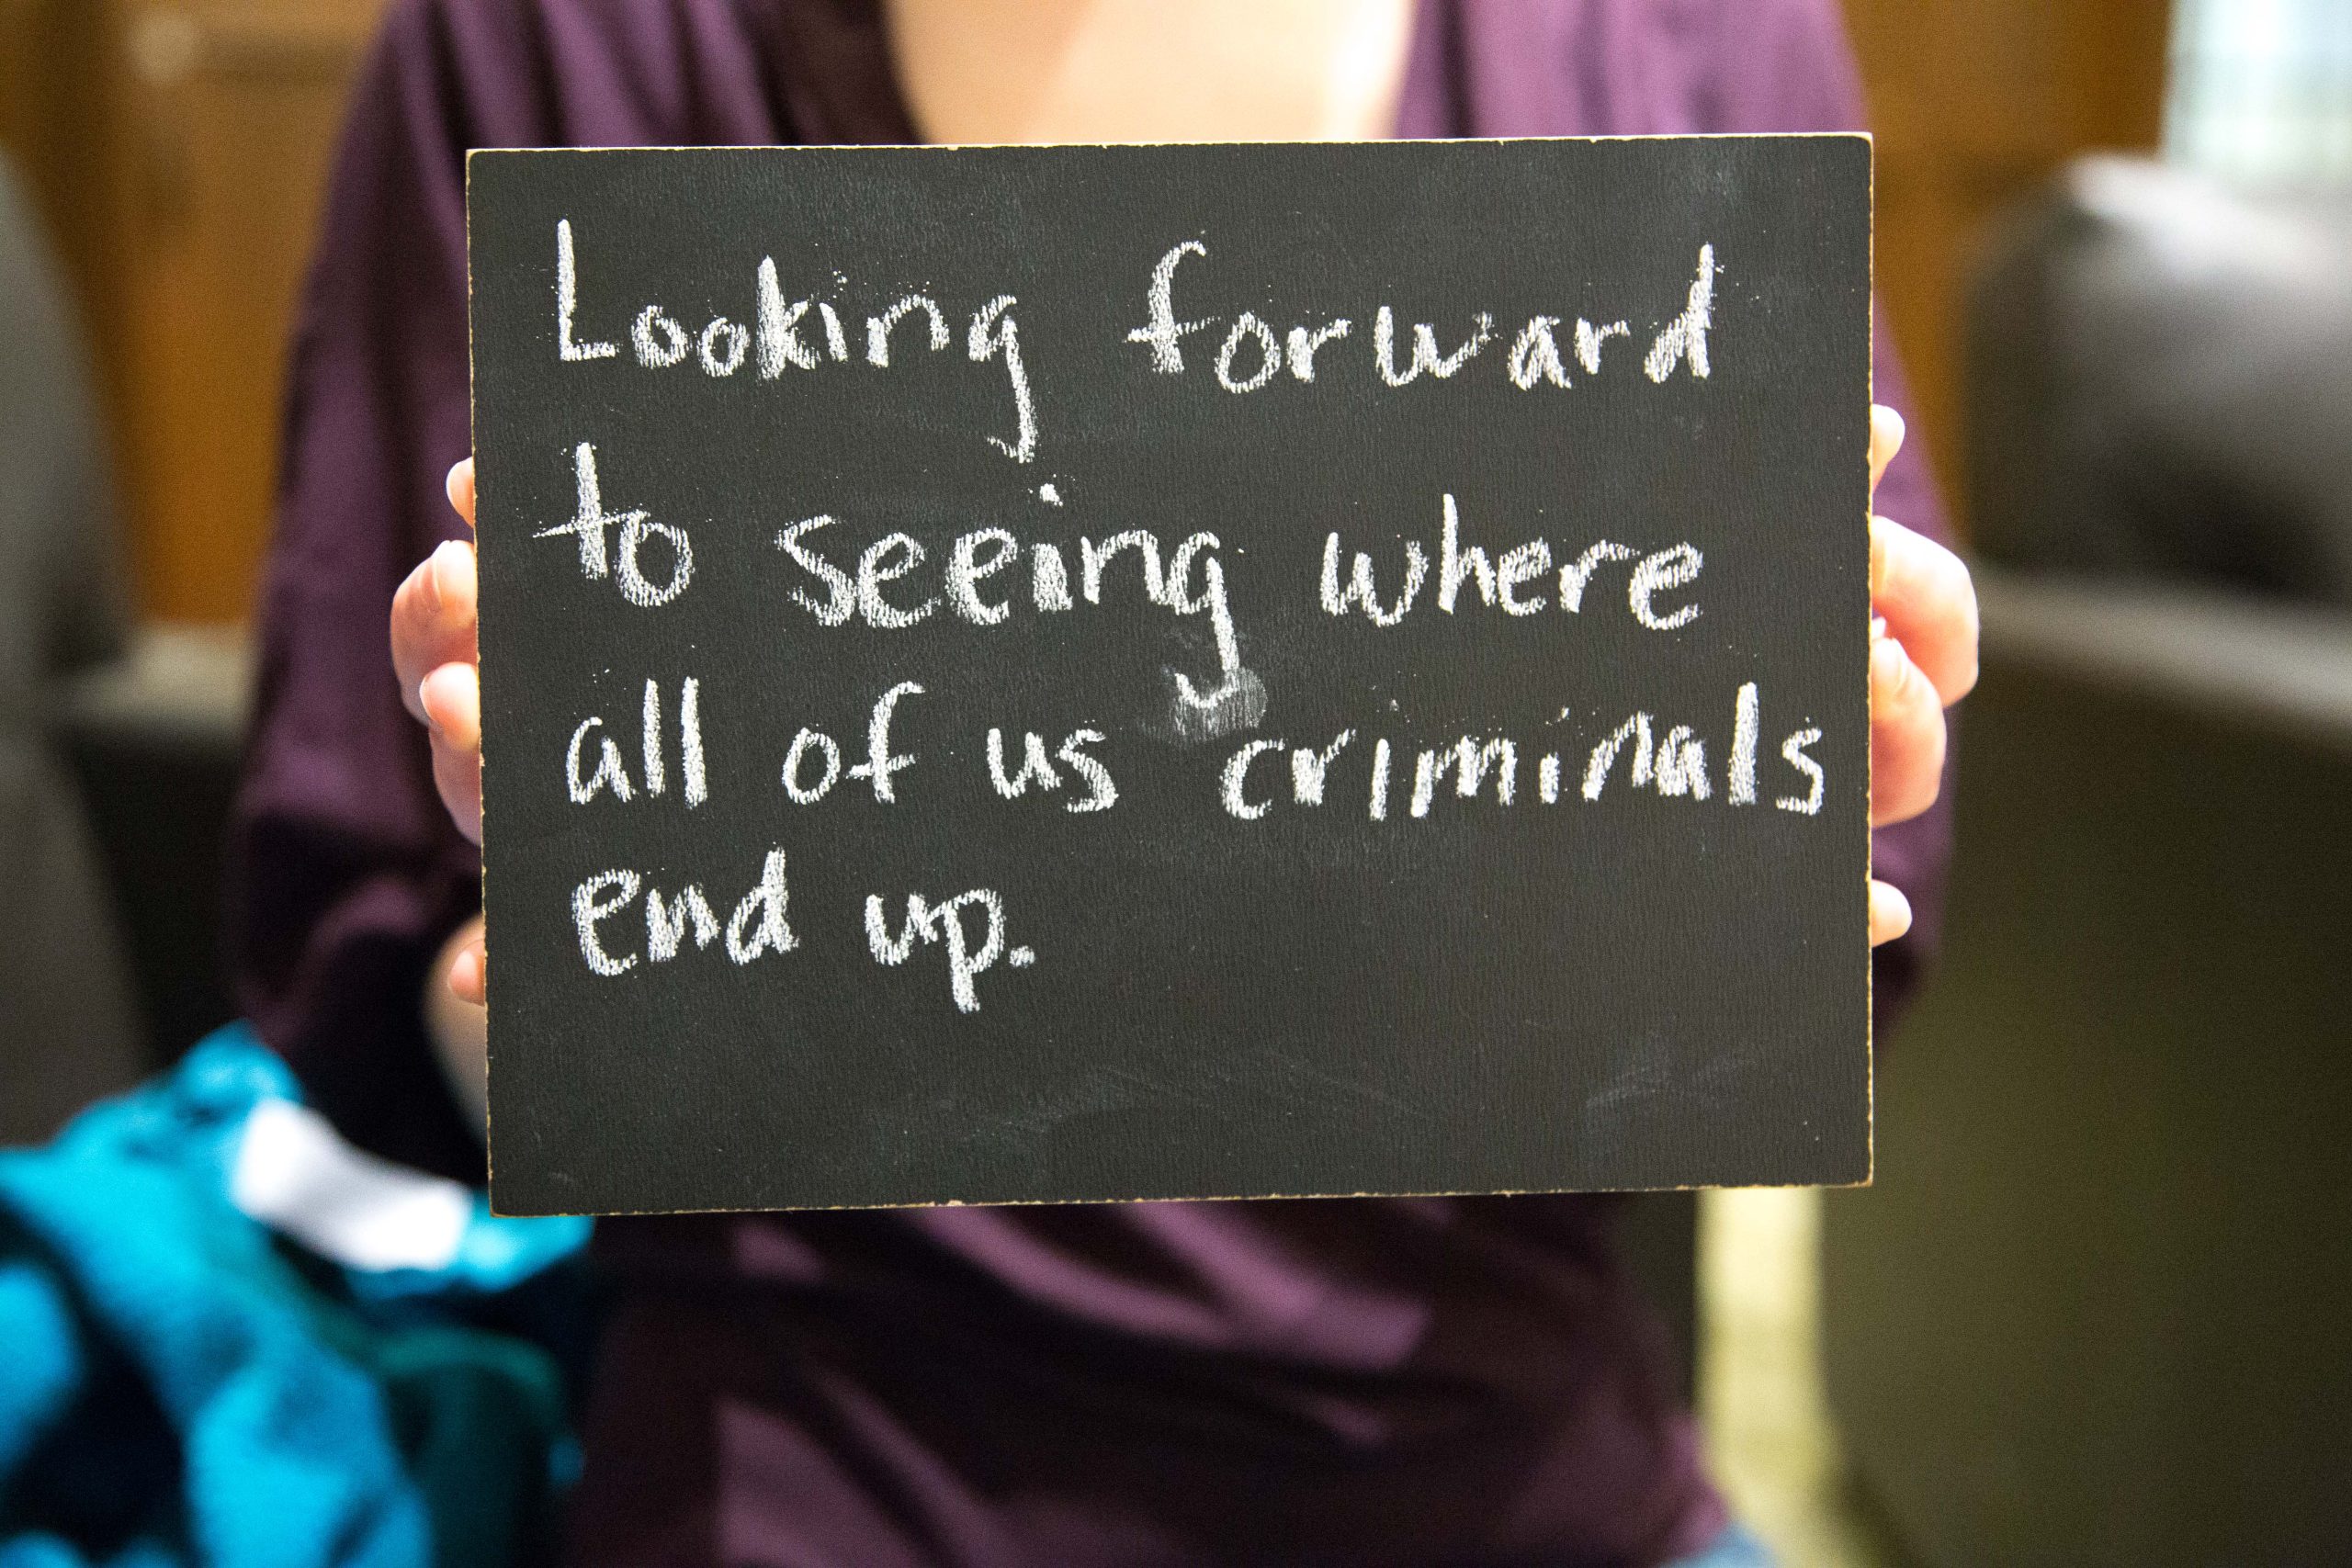 Looking forward
to seeing where
all of us criminals
end up.